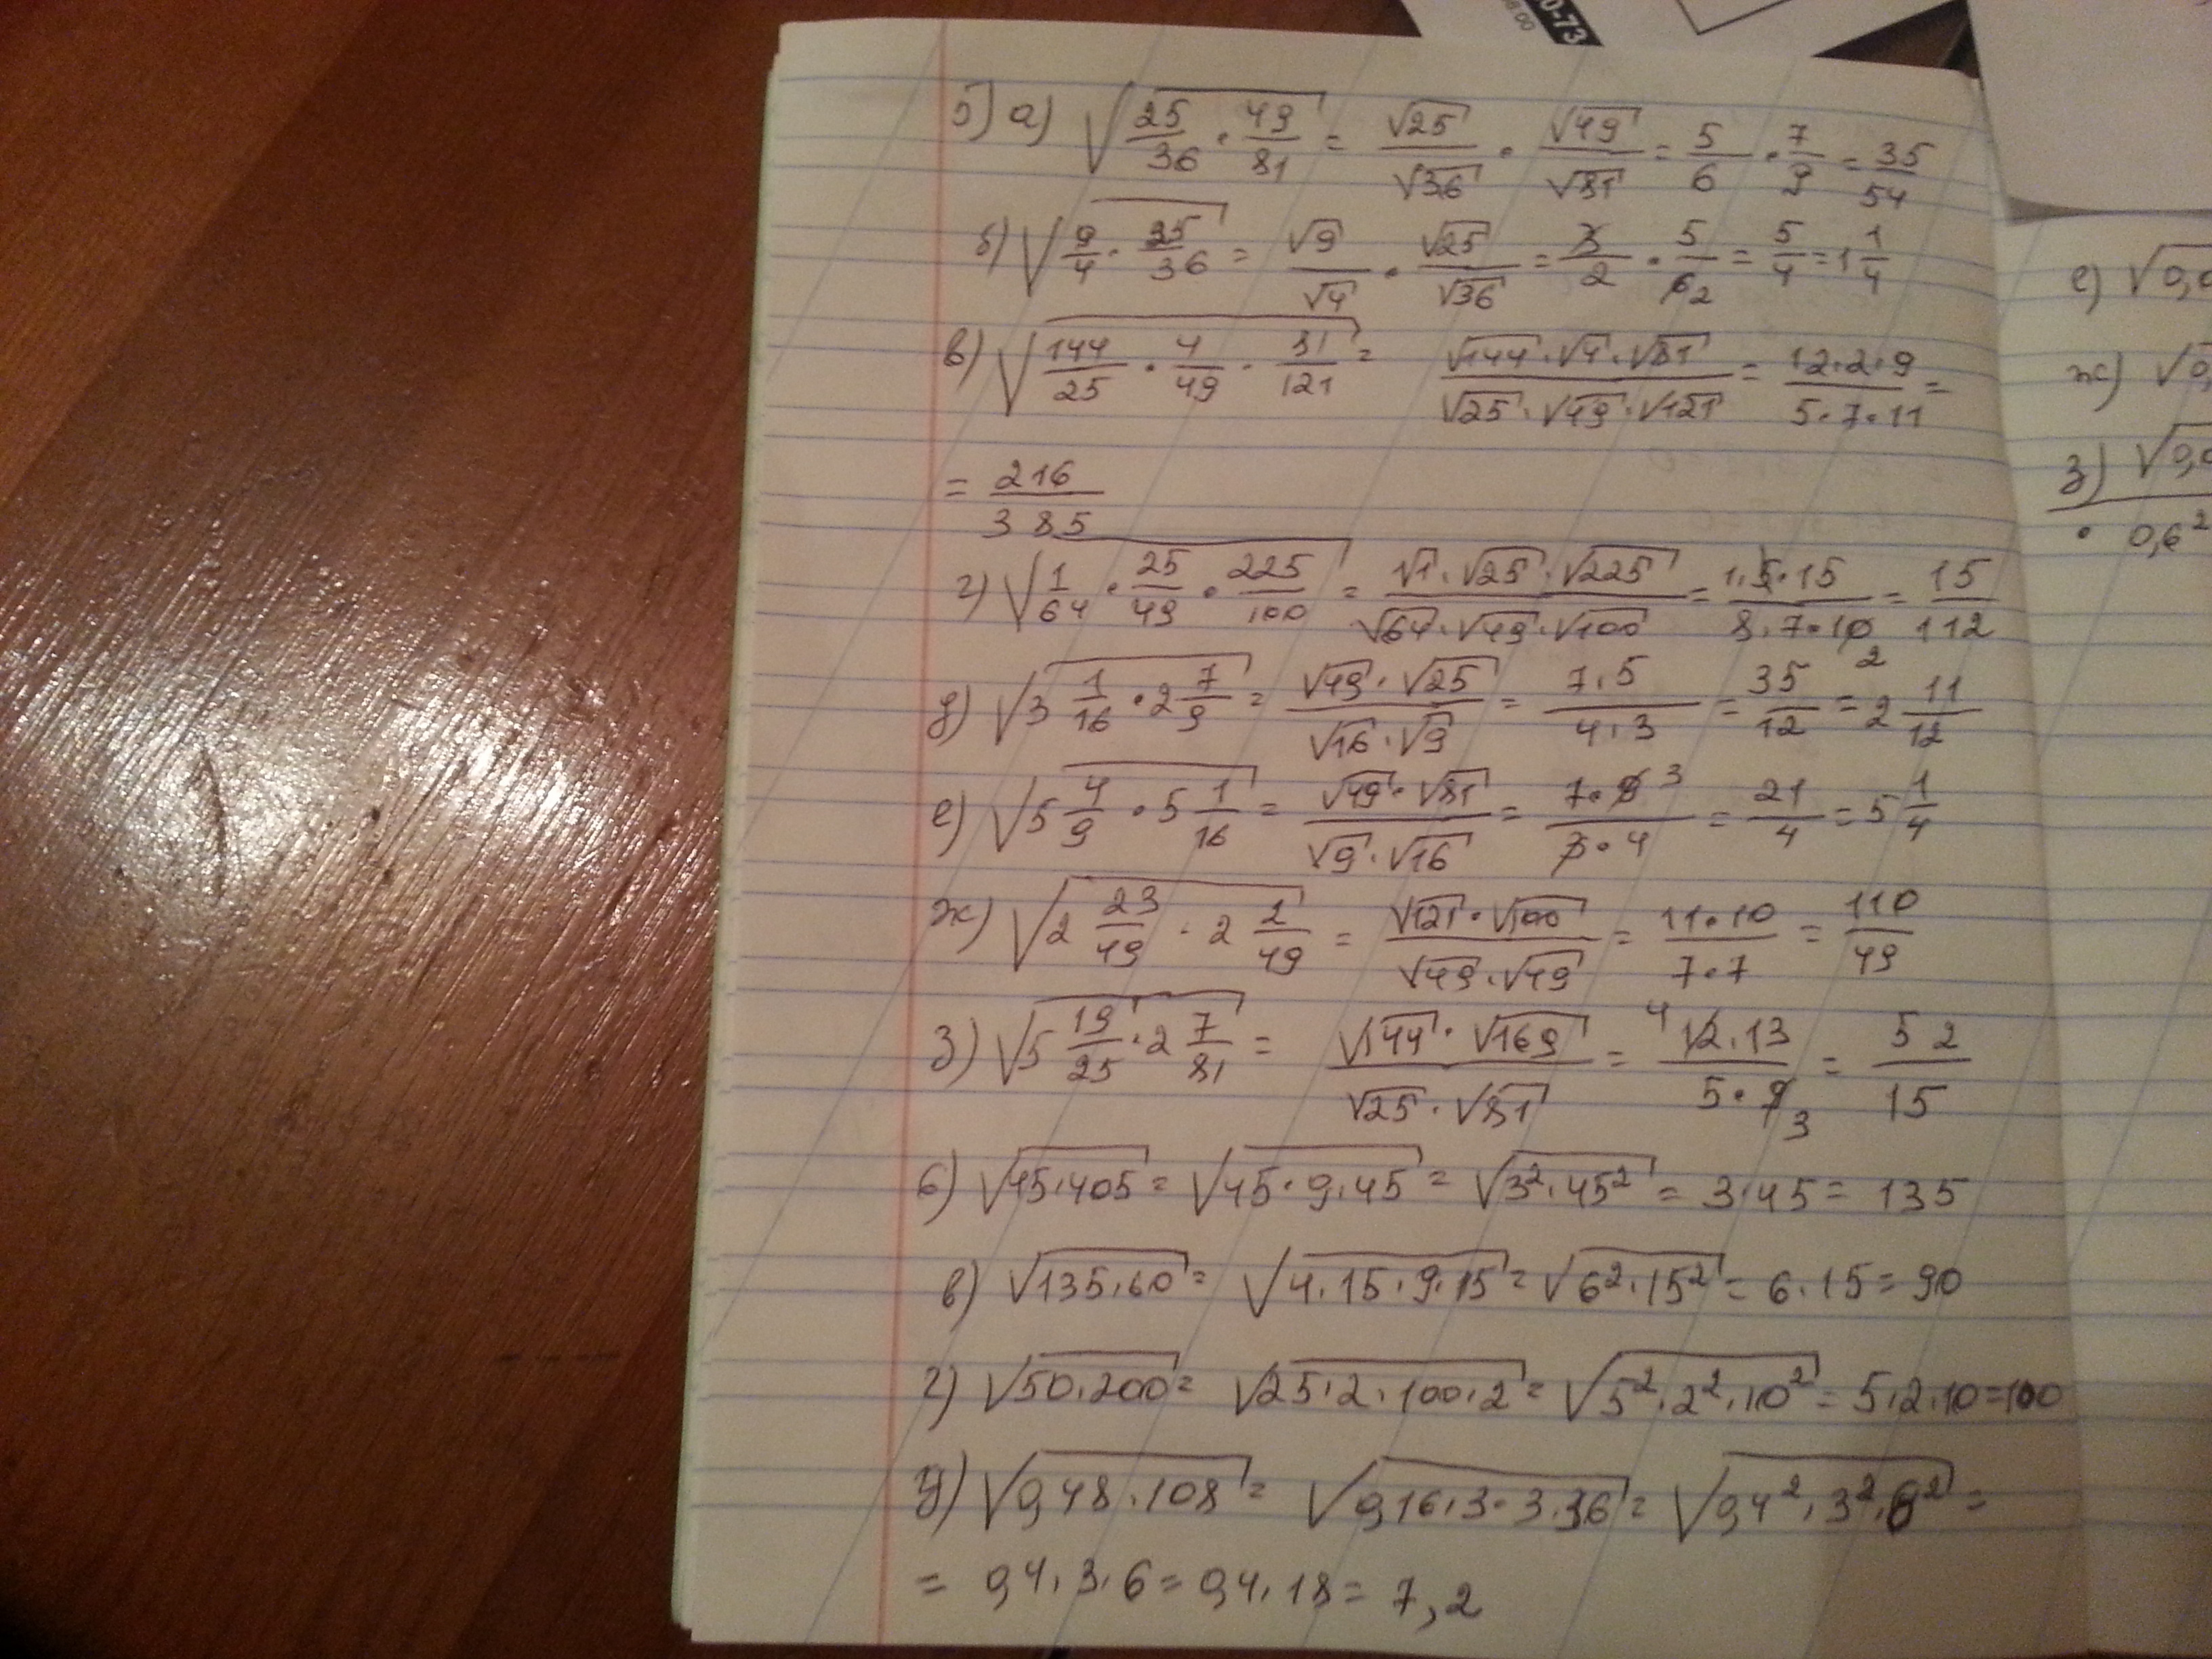 5) а) √(25/36 · 49/81) = √25/√36 · √49/√81 = 5/6 · 7/9 = 35/54
б) √(9/4 · 25/36) = √9/√4 · √25/√36 = 3/2 · 5/6 2 = 5/4 = 1 1/4
в) √(144/25 · 4/49 · 81/121) = (√144 · √4 · √81)/(√25 · √49 · √121) = (12·2·9)/(5·7·11) =
= 216/385
г) √(1/64 · 25/49 · 225/100) = (√1 · √25 · √225)/(√64 · √49 · √100) = (1·5·15)/(8·7·10 2) = 15/112
д) √(3 1/16 · 2 7/9) = (√49 · √25)/(√16 · √9) = (7·5)/(4·3) = 35/12 = 2 11/12
е) √(5 4/9 · 5 1/16) = (√49 · √81)/(√9 · √16) = (7·9 3)/(3·4) = 21/4 = 5 1/4
ж) √(2 23/49 · 2 2/49) = (√121 · √100)/(√49 · √49) = (11·10)/(7·7) = 110/49
з) √(5 19/25 · 2 7/81) = (√144 · √169)/(√25 · √81) = (4 12·13)/(5·9 3) = 52/15
6) √(45·405) = √(45·9·45) = √(3²·45²) = 3·45 = 135
в) √(135·60) = √(4·15·9·15) = √(6²·15²) = 6·15 = 90
г) √(50·200) = √(25·2·100·2) = √(5²·2²·10²) = 5·2·10 = 100
д) √(0,48·108) = √(0,16·3·3·36) = √(0,4²·3²·6²) =
= 0,4·3·6 = 0,4·18 = 7,2
е) √0,
ж) √0,
з) √0,
· 0,6²
0-73